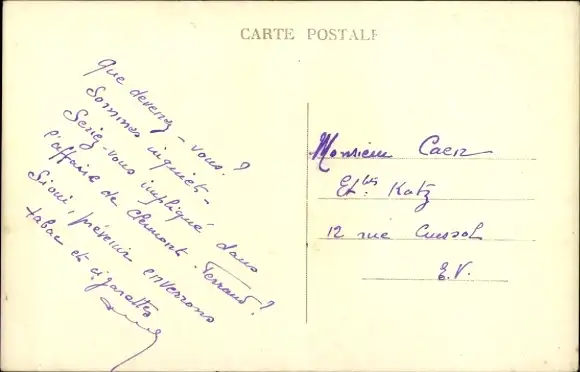 CARTE POSTALE
Que devenez-vous ?
Sommes inquiets -
Seriez-vous impliqué dans
l'affaire de Clermont-Ferrand ?
Si oui, prévenir enverrons
tabac et cigarettes
Monsieur Caen
Ets Katz
12 rue Cussol
E.V.